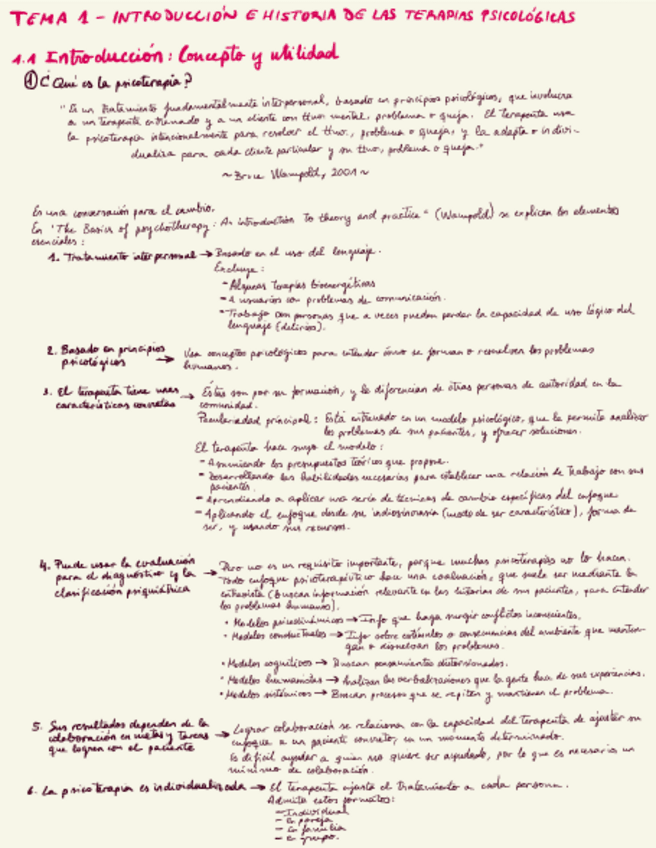 TEMA 1 - INTRODUCCIÓN E HISTORIA DE LAS TERAPIAS PSICOLÓGICAS
1.1 Introducción: Concepto y utilidad
① ¿Qué es la psicoterapia?
"Es un tratamiento fundamentalmente interpersonal, basado en principios psicológicos, que involucra
a un terapeuta entrenado y a un cliente con ttno mental, problema o queja. El terapeuta usa
la psicoterapia intencionalmente para resolver el ttno., problema o queja, y la adapta o indivi-
dualiza para cada cliente particular y su ttno, problema o queja."
~ Bruce Wampold, 2001 ~
Es una conversación para el cambio.
En "The Basics of psychotherapy: An introduction to theory and practice" (Wampold) se explican los elementos
esenciales:
1. Tratamiento interpersonal → Basado en el uso del lenguaje.
Excluye:
- Algunas terapias bioenergéticas
- A usuarios con problemas de comunicación.
- Trabajo con personas que a veces puedan perder la capacidad de uso lógico del
lenguaje (delirios).
2. Basado en principios
psicológicos → Usa conceptos psicológicos para entender cómo se forman o resuelven los problemas
humanos.
3. El terapeuta tiene unas
características concretas → Éstas son por su formación, y le diferencian de otras personas de autoridad en la
comunidad.
Peculiaridad principal: Está entrenado en un modelo psicológico, que le permite analizar
los problemas de sus pacientes, y ofrecer soluciones.
El terapeuta hace suyo el modelo:
- Asumiendo los presupuestos teóricos que propone.
- Desarrollando las habilidades necesarias para establecer una relación de trabajo con sus
pacientes.
- Aprendiendo a aplicar una serie de técnicas de cambio específicas del enfoque
- Aplicando el enfoque desde su indiosincrasia (modo de ser característico), forma de
ser, y usando sus recursos.
4. Puede usar la evaluación
para el diagnóstico y la
clasificación psiquiátrica → Pero no es un requisito importante, porque muchas psicoterapias no lo hacen.
Todo enfoque psicoterapéutico hace una evaluación, que suele ser mediante la
entrevista (buscan información relevante en las historias de sus pacientes, para entender
los problemas humanos).
• Modelos psicodinámicos → Info que haga surgir conflictos inconscientes.
• Modelos conductuales → Info sobre estímulos o consecuencias del ambiente que manten-
gan o disuelvan los problemas.
• Modelos cognitivos → Buscan pensamientos distorsionados.
• Modelos humanistas → Analizan las verbalizaciones que la gente hace de sus experiencias.
• Modelos sistémicos → Buscan procesos que se repiten y mantienen el problema.
5. Sus resultados dependen de la
colaboración en metas y tareas
que logren con el paciente → Lograr colaboración se relaciona con la capacidad del terapeuta de ajustar su
enfoque a un paciente concreto, en un momento determinado.
Es difícil ayudar a quien no quiere ser ayudado, por lo que es necesario un
mínimo de colaboración.
6. La psicoterapia es individualizada → El terapeuta ajusta el tratamiento a cada persona.
Admite estos formatos:
- Individual
- En pareja
- En familia
- En grupo.